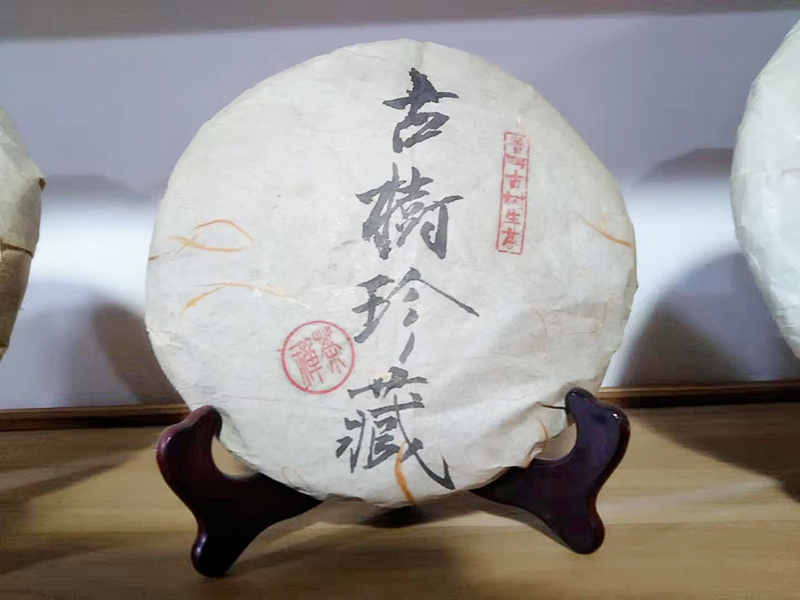 古樹珍藏
普洱古树生茶
禅茶